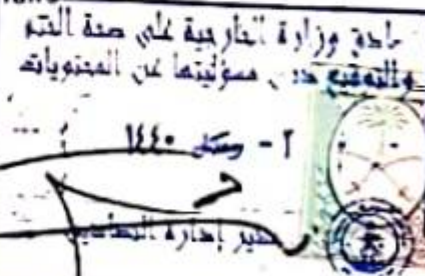 صادق وزارة الخارجية على صحة الختم
والتوقيع دون مسؤوليتها عن المحتويات
٢ - ١٤٤٠
مدير إدارة التصاديق